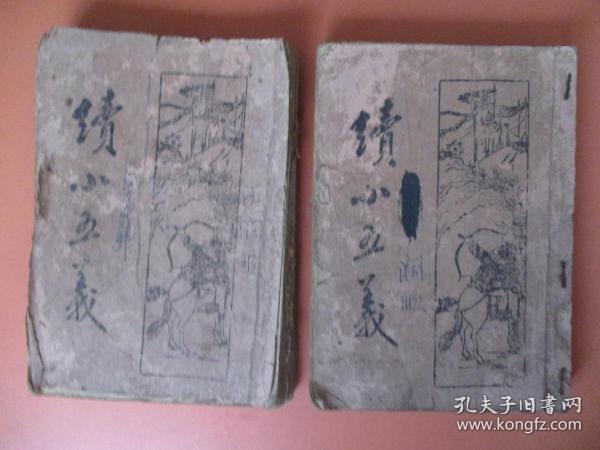 續小五義
續小五義
孔夫子旧書网
www.kongfz.com